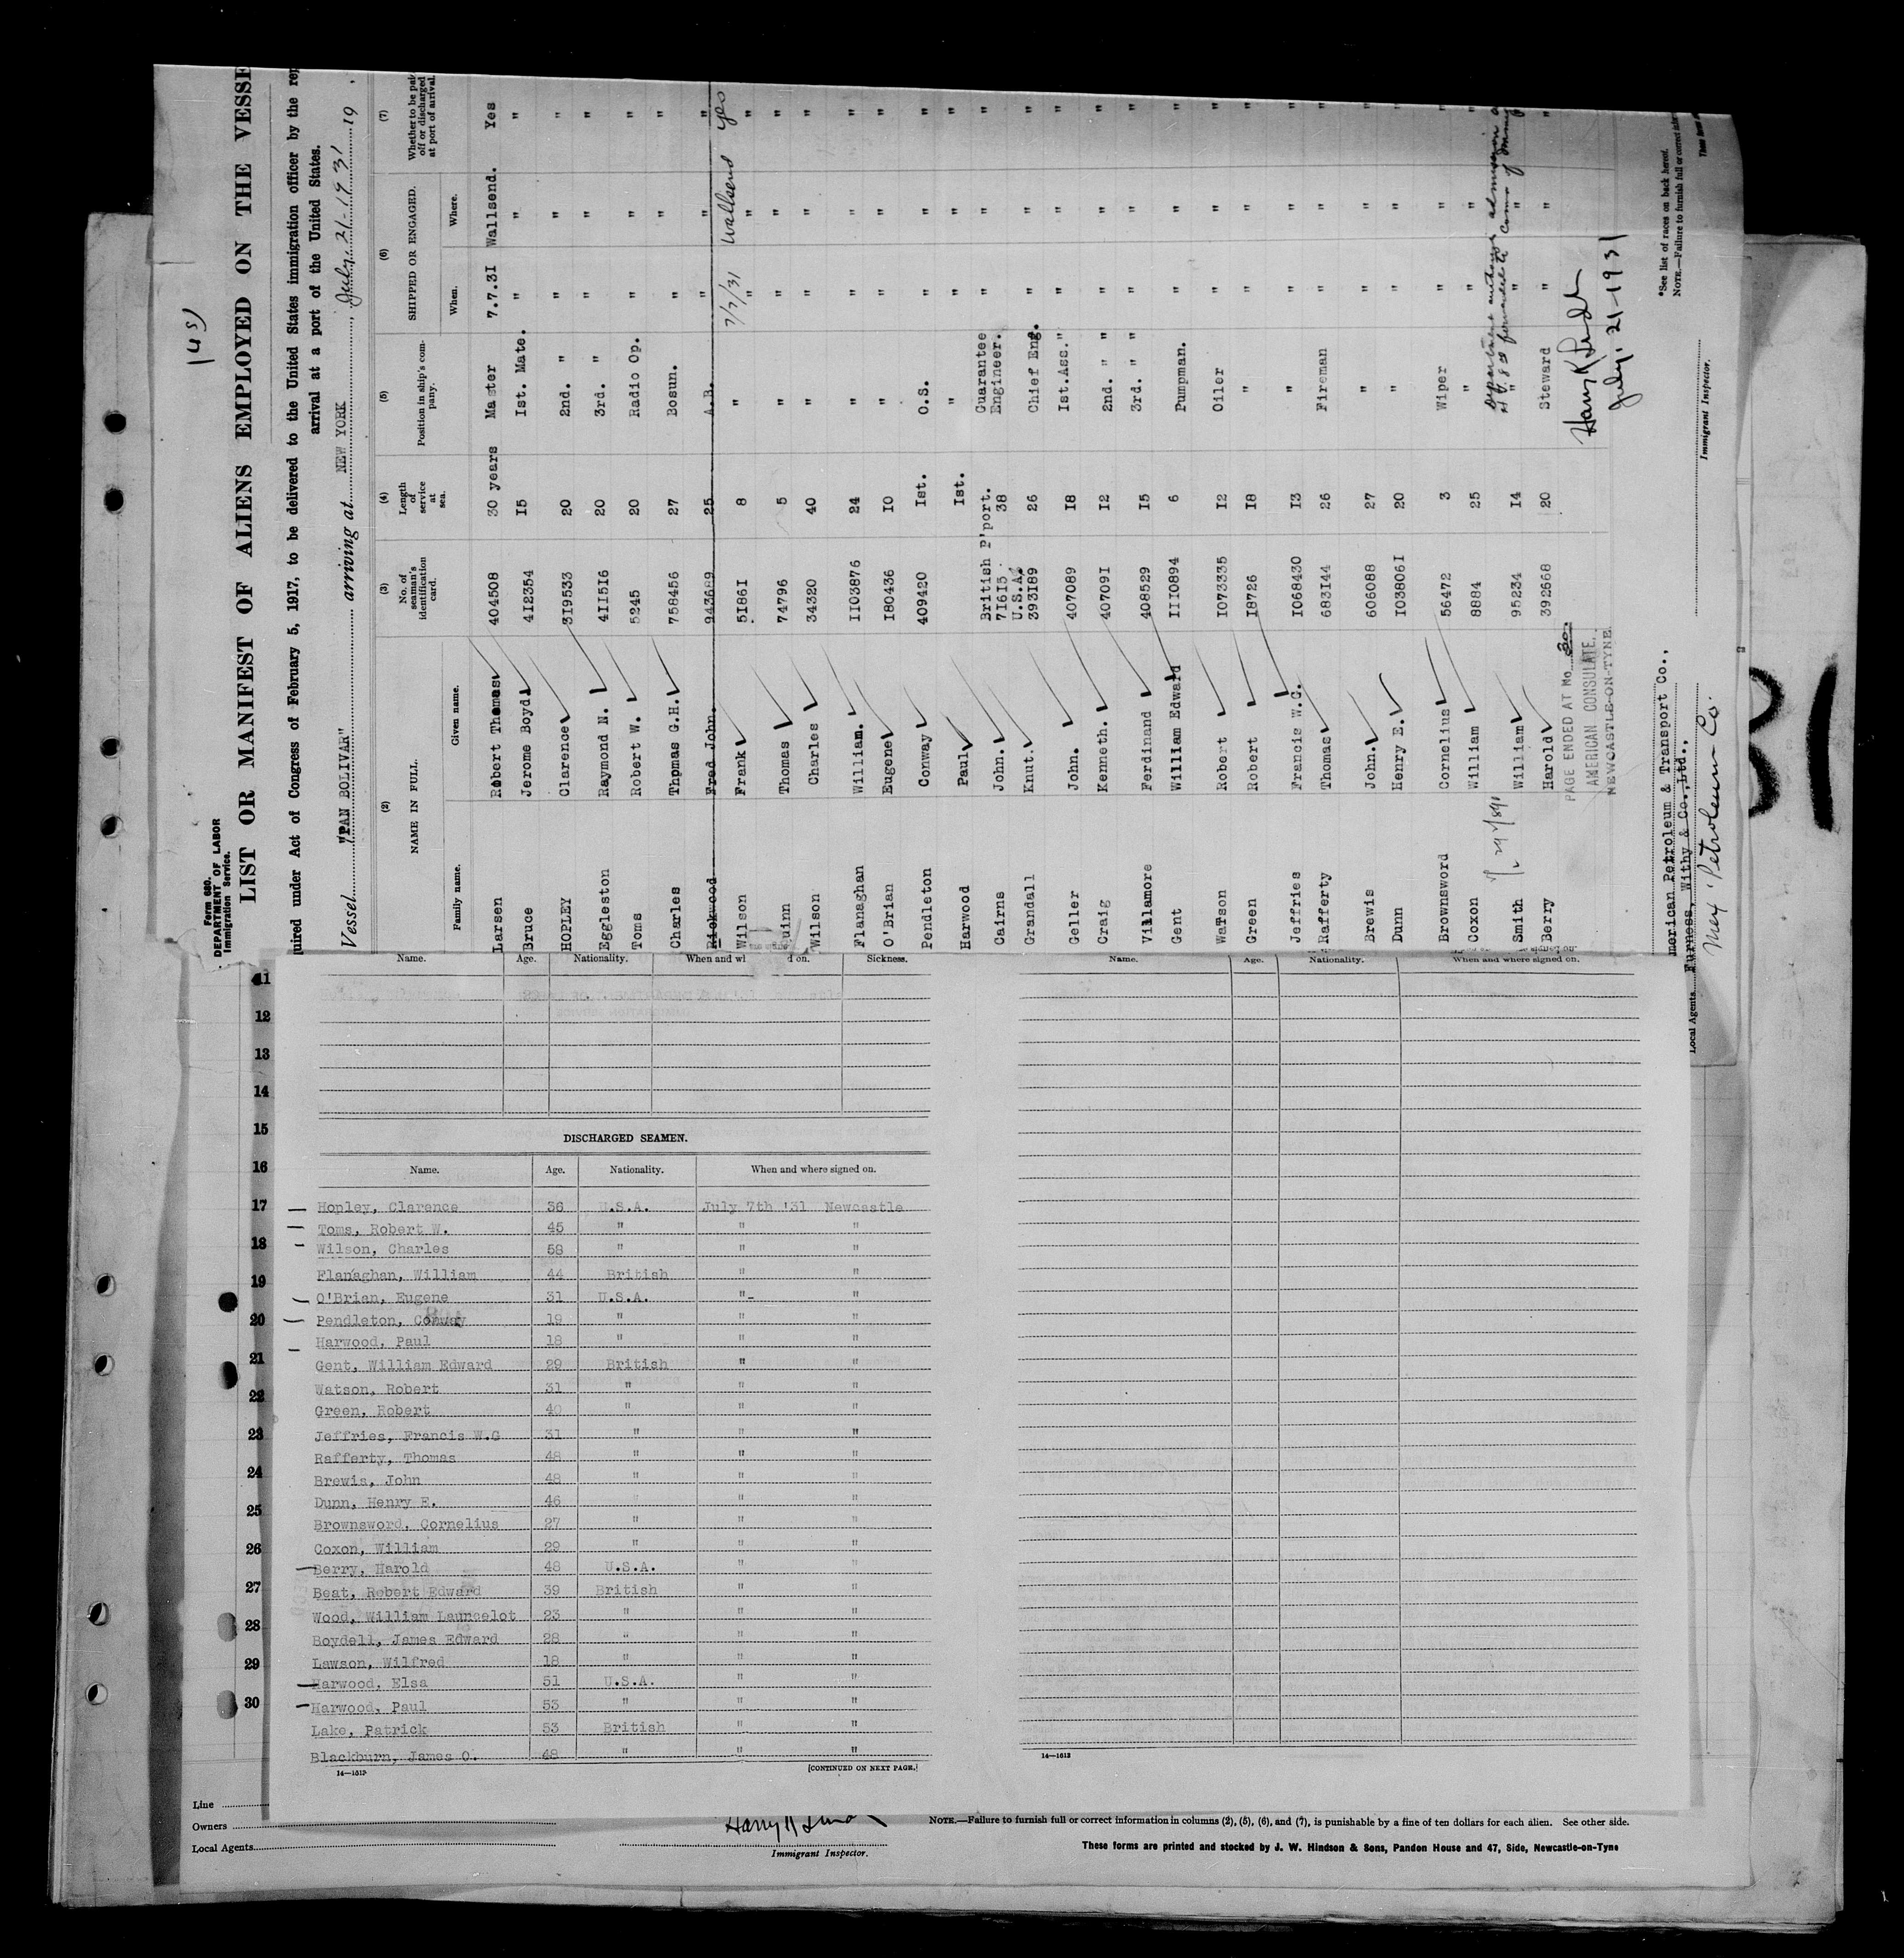 (45)
Form 680.
DEPARTMENT OF LABOR
Immigration Service.
LIST OR MANIFEST OF ALIENS EMPLOYED ON THE VESSE
quired under Act of Congress of February 5, 1917, to be delivered to the United States immigration officer by the rep
arrival at a port of the United States.
Vessel "PAN BOLIVAR" arriving at NEW YORK, July 21-1931 19
(2) (3) (4) (5) (6) (7)
NAME IN FULL. No. of seaman's identification card. Length of service at sea. Position in ship's company. SHIPPED OR ENGAGED. Whether to be paid off or discharged at port of arrival.
Family name. Given name. When. Where.
Larsen Robert Thomas 404508 30 years Master 7.7.3I Wallsend. Yes
Bruce Jerome Boyd 412354 I5 Ist. Mate. " " "
HOPLEY Clarence 319533 20 2nd. " " " "
Eggleston Raymond N. 4II5I6 20 3rd. " " " "
Toms Robert W. 5245 20 Radio Op. " " "
Charles Thomas G.H. 758456 27 Bosun. " " "
Rickwood Fred John. 943689 25 A.B. " " "
Wilson Frank 5I86I 8 " 7/7/31 Wallsend yes
Quinn Thomas 74796 5 " " " "
Wilson Charles 34320 40 " " " "
Flanaghan William. II03876 24 " " " "
O'Brian Eugene I80436 I0 " " " "
Pendleton Conway 409420 Ist. O.S. " " "
Harwood Paul Ist. " " " "
Cairns John. British P'port. 7I6I5 38 Guarantee Engineer. " " "
Grandall Knut. U.S.A. 393I89 26 Chief Eng. " " "
Geller John. 407089 I8 Ist.Ass." " " "
Craig Kenneth. 40709I I2 2nd. " " " " "
Villamore Ferdinand 408529 I5 3rd. " " " " "
Gent William Edward III0894 6 Pumpman. " " "
WaTson Robert I073335 I2 Oiler " " "
Green Robert I8726 I8 " " " "
Jeffries Francis W.G. I068430 I3 " " " "
Rafferty Thomas 683I44 26 Fireman " " "
Brewis John. 606088 27 " " " "
Dunn Henry E. I03806I 20 " " " "
Brownsword Cornelius 56472 3 Wiper " " "
Coxon William 8884 25 " " "
Smith William 95234 I4 " " "
Berry Harold 392668 20 Steward " " "
PAGE ENDED AT No. 30.
AMERICAN CONSULATE,
NEWCASTLE-ON-TYNE.
Harry K
July, 21-1931
Immigrant Inspector.
*See list of races on back hereof.
NOTE.—Failure to furnish full or correct
These forms
merican Petroleum & Transport Co.,
Local Agents Furness, Withy & Co., Ltd.,
Mex Petroleum Co.
Name. Age. Nationality. When and wh d on. Sickness.
Name. Age. Nationality. When and where signed on.
11
12
13
14
15
16
17
18
19
20
21
22
23
24
25
26
27
28
29
30
DISCHARGED SEAMEN.
Name. Age. Nationality. When and where signed on.
Hopley, Clarence 36 U.S.A. July 7th '31 Newcastle
Toms, Robert W. 45 " " "
Wilson, Charles 58 " " "
Flanaghan, William 44 British " "
O'Brian, Eugene 31 U.S.A. " "
Pendleton, Conway 19 " " "
Harwood, Paul 18 " " "
Gent, William Edward 29 British " "
Watson, Robert 31 " " "
Green, Robert 40 " " "
Jeffries, Francis W.G 31 " " "
Rafferty, Thomas 48 " " "
Brewis, John 48 " " "
Dunn, Henry E. 46 " " "
Brownsword, Cornelius 27 " " "
Coxon, William 29 " " "
Berry, Harold 48 U.S.A. " "
Beat, Robert Edward 39 British " "
Wood, William Launcelot 23 " " "
Boydell, James Edward 28 " " "
Lawson, Wilfred 18 " " "
Harwood, Elsa 51 U.S.A. " "
Harwood, Paul 53 " " "
Lake, Patrick 53 British " "
Blackburn, James O. 48 " " "
14—1613
[CONTINUED ON NEXT PAGE.]
14—1613
Line
Owners
Local Agents
Immigrant Inspector.
NOTE.—Failure to furnish full or correct information in columns (2), (5), (6), and (7), is punishable by a fine of ten dollars for each alien. See other side.
These forms are printed and stocked by J. W. Hindson & Sons, Pandon House and 47, Side, Newcastle-on-Tyne